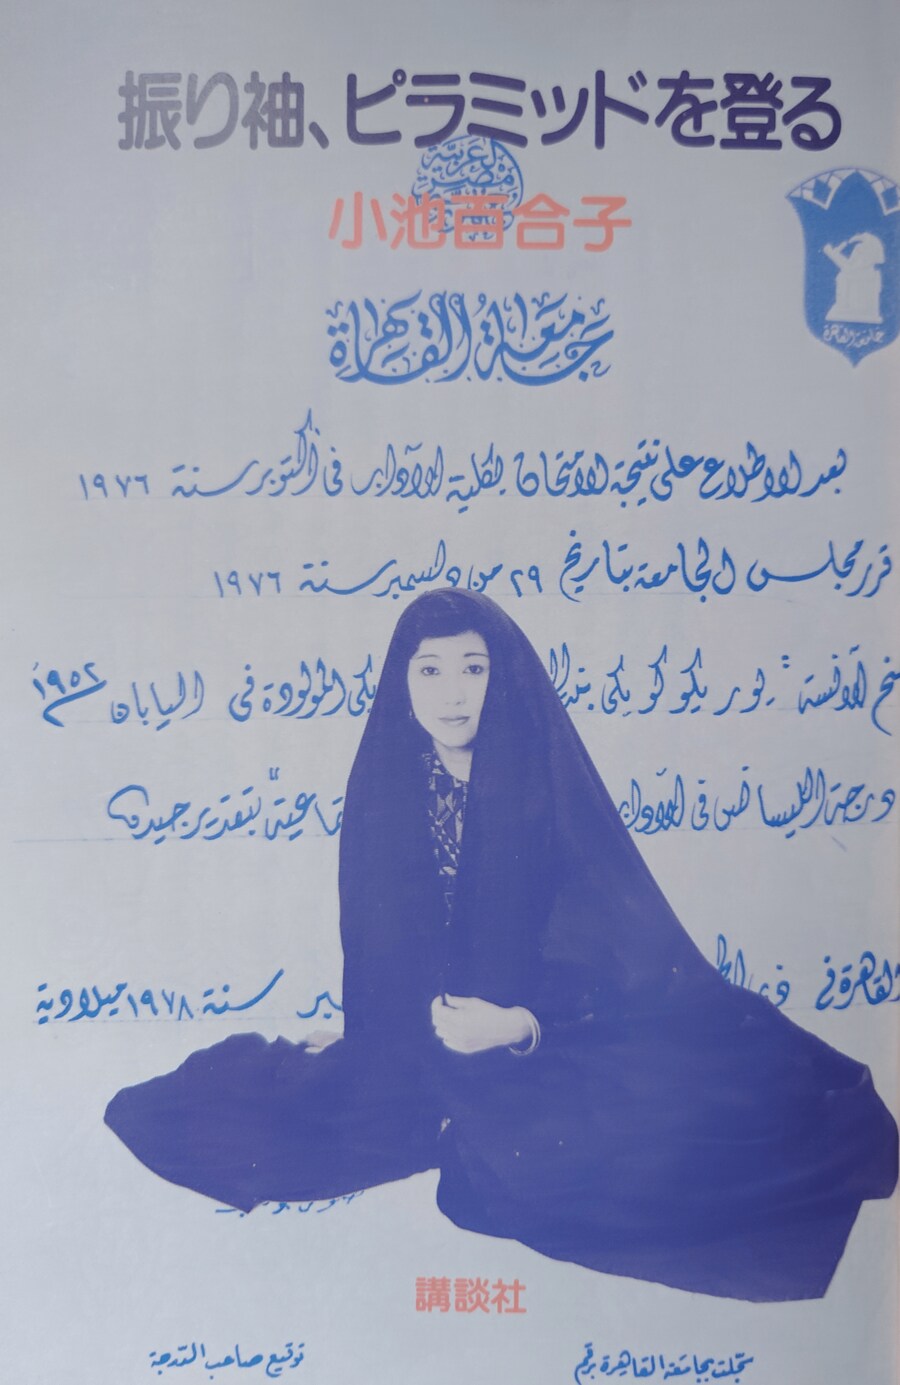 振り袖、ピラミッドを登る
小池百合子
جامعة القاهرة
جامعة القاهرة
بعد الاطلاع على نتيجة الامتحان لكلية الآداب في أكتوبر سنة ١٩٧٦
قرر مجلس الجامعة بتاريخ ٢٩ من ديسمبر سنة ١٩٧٦
الآنسة : يوريكو كويكى المولودة في اليابان ١٩٥٢
درجة الليسانس في الآداب بتقدير جيد
القاهرة في سنة ١٩٧٨ ميلادية
講談社
توقيع صاحب الدرجة
سجلت بجامعة القاهرة برقم